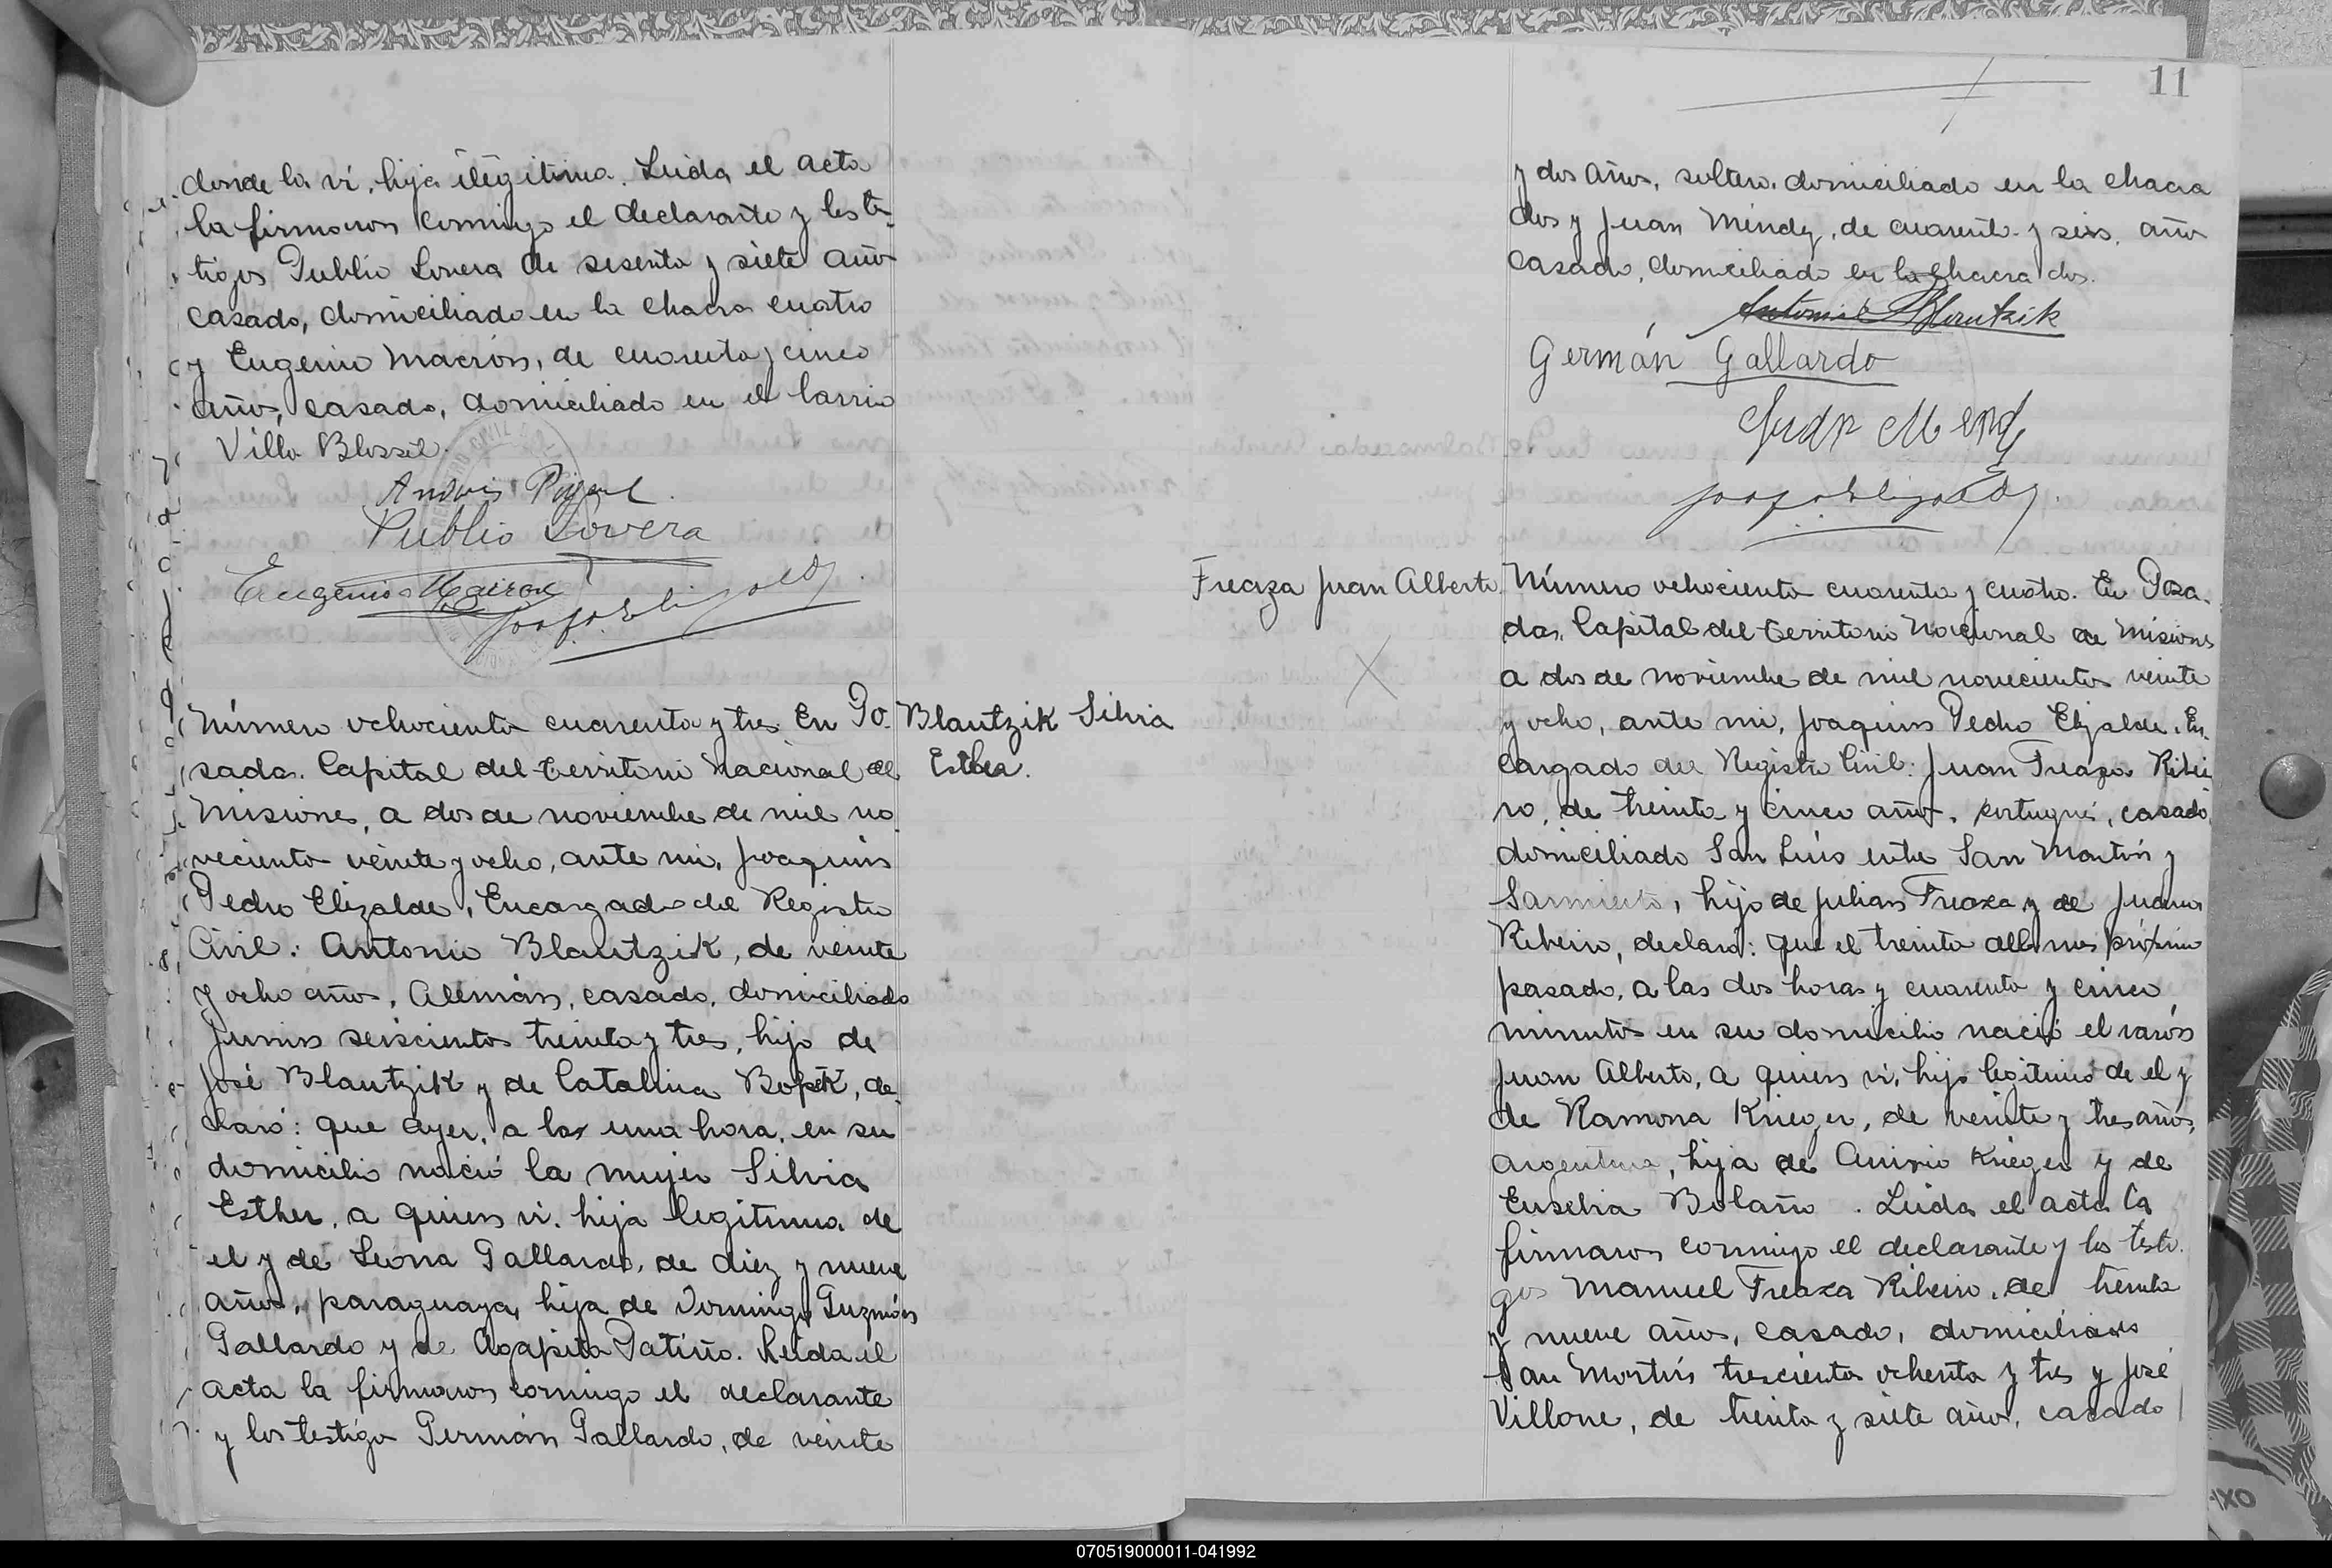 donde la ví, hija ilegitima. Leida el acta
la firmaron conmigo el declarante y los tes-
tigos Publio Lovera de sesenta y siete años
casado, domiciliado en la chacra cuatro
y Eugenio Macron, de cuarenta y cinco
años, casado, domiciliado en el barrio
Villa Blosset.
Publio Lovera
Eugenio
Número ochociento cuarenta y tres. En Po-
sadas. Capital del Territorio Nacional de
Misiones, a dos de noviembre de mil no
veciento veinte y ocho, ante mi, Joaquin
Pedro Elizalde, Encargado del Registro
Civil: Antonio Blautzik, de veinte
y ocho años, Alemán, casado, domiciliado
Junin seiscientos treinta y tres, hijo de
José Blautzik y de Catalina, de-
claró: que ayer, a las una hora, en su
domicilio nació la mujer Silvia
Esther, a quien vi. hija legitima de
el y de Leona Gallardo, de diez y nueve
años, paraguaya, hija de Domingo Guzmán
Gallardo y de Agapita Patiño. Leida el
acta la firmaron conmigo el declarante
y los testigo Germán Gallardo, de veinte
Blautzik Silvia
Esther.
11
y dos años, soltero, domiciliado en la chacra
dos y Juan Mendez, de cuarenta y seis años
casado, domiciliado en la chacra dos.
Antonio Blautzik
Germán Gallardo
Juan Mendez
Freaza Juan Alberto.
Número ochociento cuarenta y cuatro. En Posa-
das, Capital del Territorio Nacional de Misiones
a dos de noviembre de mil novecientos veinte
y ocho, ante mi, Joaquin Pedro Elizalde, En-
cargado del Registro Civil: Juan Freaza Ribei
ro, de treinta y cinco años, portugués, casado,
domiciliado San Luis entre San Martín y
Sarmiento, hijo de Julian Freaza y de Juana
Ribeiro, declaró: que el treinta del mes próximo
pasado, a las dos horas y cuarenta y cinco
minutos en su domicilio nació el varón
Juan Alberto, a quien vi, hijo legitimo de el y
de Ramona Krieger, de veinte y tres años,
argentina, hija de Krieger y de
Eusebia Bolaño. Leida el acta la
firmaron conmigo el declarante y los testi-
gos Manuel Freaza Ribeiro, de treinta
y nueve años, casado, domiciliado
San Martín trescientos ochenta y tres y José
Villone, de treinta y siete años, casado
070519000011-041992